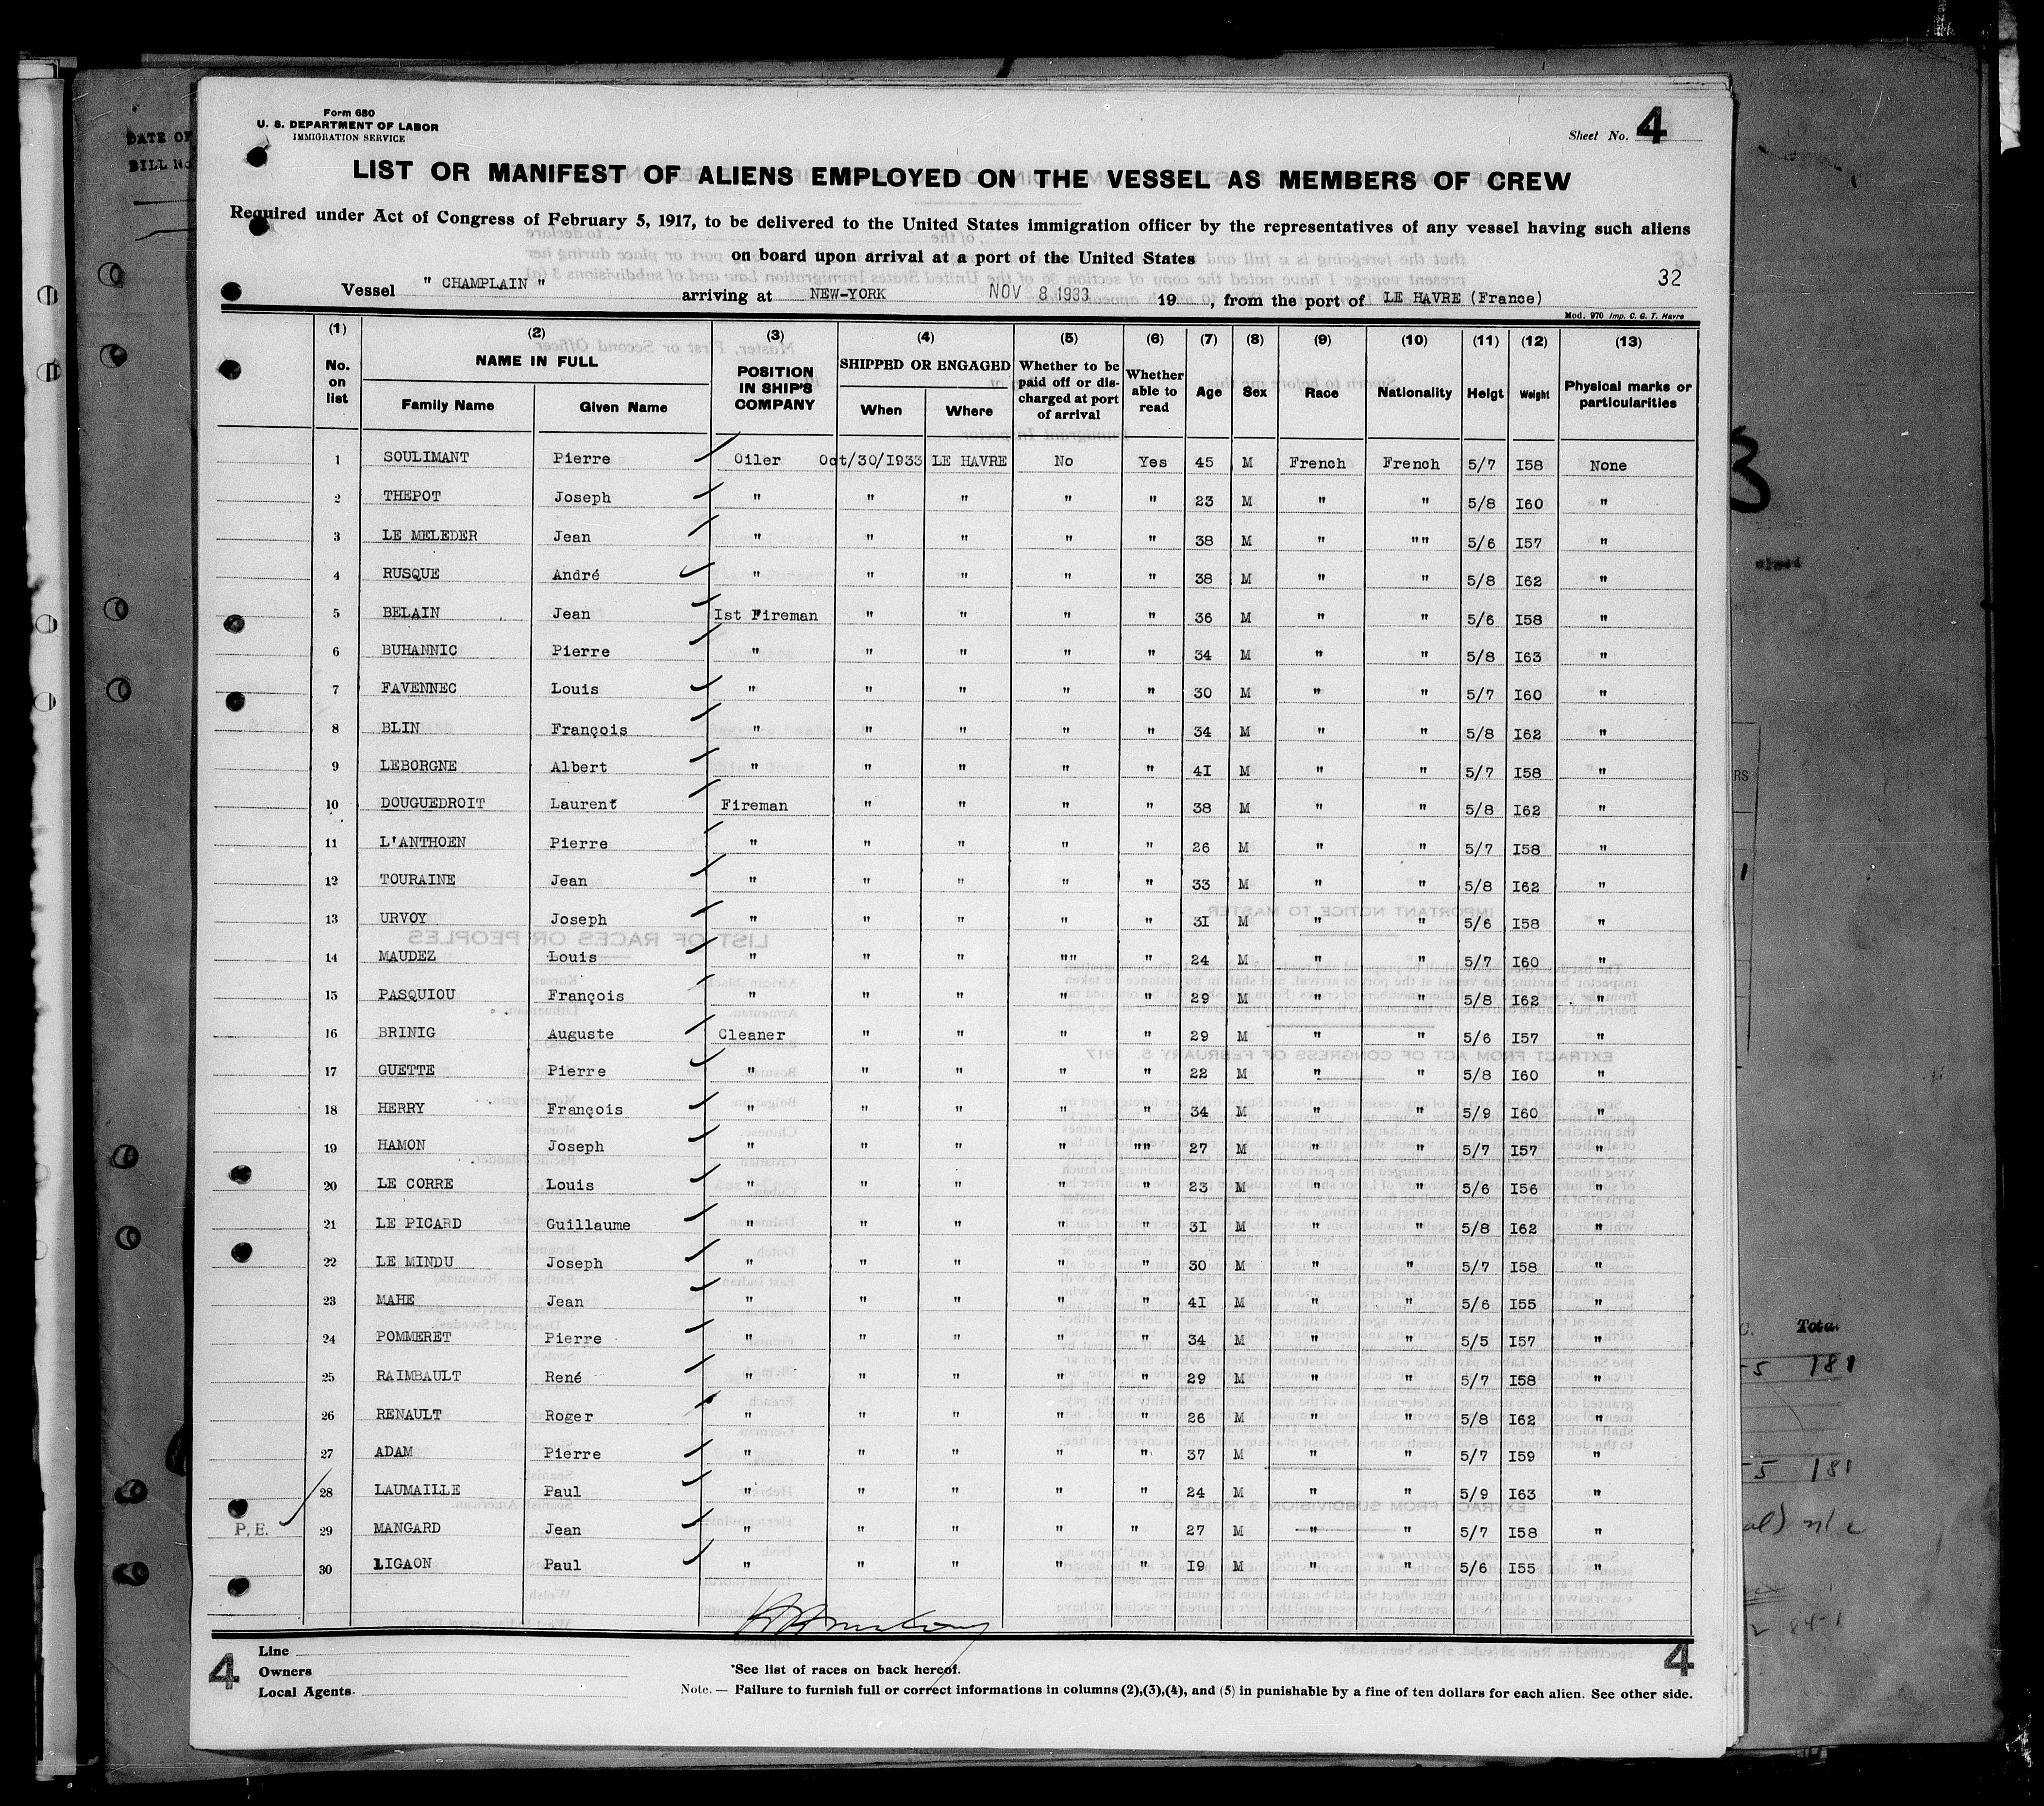 DATE OF
BILL No
Form 680
U. S. DEPARTMENT OF LABOR
IMMIGRATION SERVICE
Sheet No. 4
LIST OR MANIFEST OF ALIENS EMPLOYED ON THE VESSEL AS MEMBERS OF CREW
Required under Act of Congress of February 5, 1917, to be delivered to the United States immigration officer by the representatives of any vessel having such aliens
on board upon arrival at a port of the United States
32
Vessel " CHAMPLAIN " arriving at NEW-YORK NOV 8 1933 19 , from the port of LE HAVRE (France)
Mod. 970 Imp. C. G. T. Havre
(1) (2) (3) (4) (5) (6) (7) (8) (9) (10) (11) (12) (13)
No. on list NAME IN FULL Family Name Given Name POSITION IN SHIP'S COMPANY SHIPPED OR ENGAGED When Where Whether to be paid off or discharged at port of arrival Whether able to read Age Sex Race Nationality Heigt Weight Physical marks or particularities
1 SOULIMANT Pierre Oiler Oct/30/I933 LE HAVRE No Yes 45 M French French 5/7 I58 None
2 THEPOT Joseph " " " " " 23 M " " 5/8 I60 "
3 LE MELEDER Jean " " " " " 38 M " "" 5/6 I57 "
4 RUSQUE André " " " " " 38 M " " 5/8 I62 "
5 BELAIN Jean Ist Fireman " " " " 36 M " " 5/6 I58 "
6 BUHANNIC Pierre " " " " " 34 M " " 5/8 I63 "
7 FAVENNEC Louis " " " " " 30 M " " 5/7 I60 "
8 BLIN François " " " " " 34 M " " 5/8 I62 "
9 LEBORGNE Albert " " " " " 4I M " " 5/7 I58 "
10 DOUGUEDROIT Laurent Fireman " " " " 38 M " " 5/8 I62 "
11 L'ANTHOEN Pierre " " " " " 26 M " " 5/7 I58 "
12 TOURAINE Jean " " " " " 33 M " " 5/8 I62 "
13 URVOY Joseph " " " " " 3I M " " 5/6 I58 "
14 MAUDEZ Louis " " " "" " 24 M " " 5/7 I60 "
15 PASQUIOU François " " " " " 29 M " " 5/8 I62 "
16 BRINIG Auguste Cleaner " " " " 29 M " " 5/6 I57 "
17 GUETTE Pierre " " " " " 22 M " " 5/8 I60 "
18 HERRY François " " " " " 34 M " " 5/9 I60 "
19 HAMON Joseph " " " " "" 27 M " " 5/7 I57 "
20 LE CORRE Louis " " " " " 23 M " " 5/6 I56 "
21 LE PICARD Guillaume " " " " " 3I M " " 5/8 I62 "
22 LE MINDU Joseph " " " " " 30 M " " 5/7 I58 "
23 MAHE Jean " " " " " 4I M " " 5/6 I55 "
24 POMMERET Pierre " " " " " 34 M " " 5/5 I57 "
25 RAIMBAULT René " " " " " 29 M " " 5/7 I58 "
26 RENAULT Roger " " " " " 26 M " " 5/8 I62 "
27 ADAM Pierre " " " " " 37 M " " 5/7 I59 "
28 LAUMAILLE Paul " " " " " 24 M " " 5/9 I63 "
P.E. 29 MANGARD Jean " " " " " 27 M " " 5/7 I58 "
30 LIGAON Paul " " " " " I9 M " " 5/6 I55 "
4 Line 4
Owners *See list of races on back hereof.
Local Agents Note. — Failure to furnish full or correct informations in columns (2),(3),(4), and (5) in punishable by a fine of ten dollars for each alien. See other side.
3
RS
Total
181
181